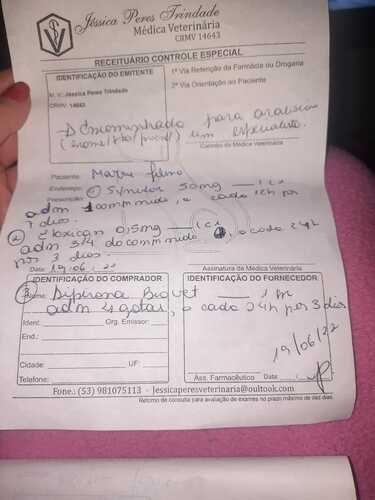 Jéssica Peres Trindade
Médica Veterinária
CRMV 14643
RECEITUÁRIO CONTROLE ESPECIAL
IDENTIFICAÇÃO DO EMITENTE
M. V.: Jéssica Peres Trindade
CRMV: 14643
1ª Via Retenção da Farmácia ou Drogaria
2ª Via Orientação ao Paciente
Encaminhado para
um especialista.
Carimbo da Médica Veterinária
Paciente:
Endereço: ① 50mg — 1 cx
Prescrição: adm 1 comprimido, a cada 12h por
7 dias.
② 0,5mg — 1 cx
adm 3/4 do comprimido, a cada 24h
por 3 dias.
Data 19/06/22
Assinatura da Médica Veterinária
IDENTIFICAÇÃO DO COMPRADOR
IDENTIFICAÇÃO DO FORNECEDOR
③ Nome: Dipirona — 1 fr
adm gotas, a cada 24h por 3 dias
Ident.: Org. Emissor:
End.:
Cidade: UF:
Telefone:
19/06/22
Ass. Farmacêutico Data
Fone.: (53) 981075113 - Jessicaperesveterinaria@oultook.com
Retorno de consulta para avaliação de exames no prazo máximo de dez dias.